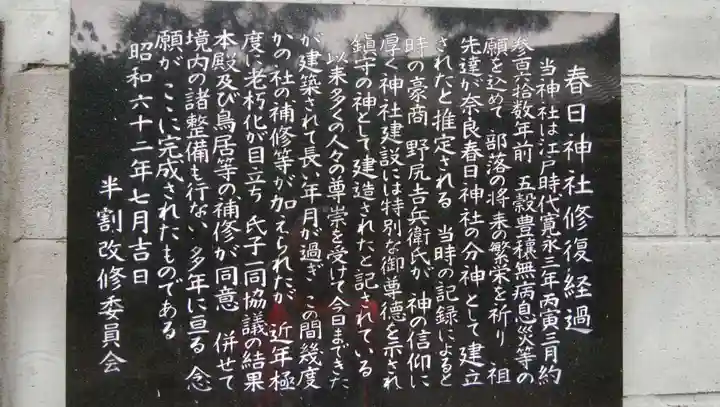 春日神社修復経過
当神社は江戸時代寛永三年丙寅三月約
参百六拾数年前 五穀豊穣無病息災等の
願を込めて 部落の将来の繁栄を祈り 祖
先達が奈良春日神社の分神として建立
されたと推定される 当時の記録によると
時の豪商 野尻吉兵衛氏が 神の信仰に
厚く神社建設には特別な御尊徳を示され
鎮守の神として建造されたと記されている
以来多くの人々の尊崇を受けて今日まできた
が建築されて長い年月が過ぎ この間幾度
かの社の補修等が加えられたが 近年極
度に老朽化が目立ち 氏子一同協議の結果
本殿及び鳥居等の補修が同意 併せて
境内の諸整備も行ない 多年に亘る 念
願が ここに完成されたものである
昭和六十二年七月吉日
半割改修委員会